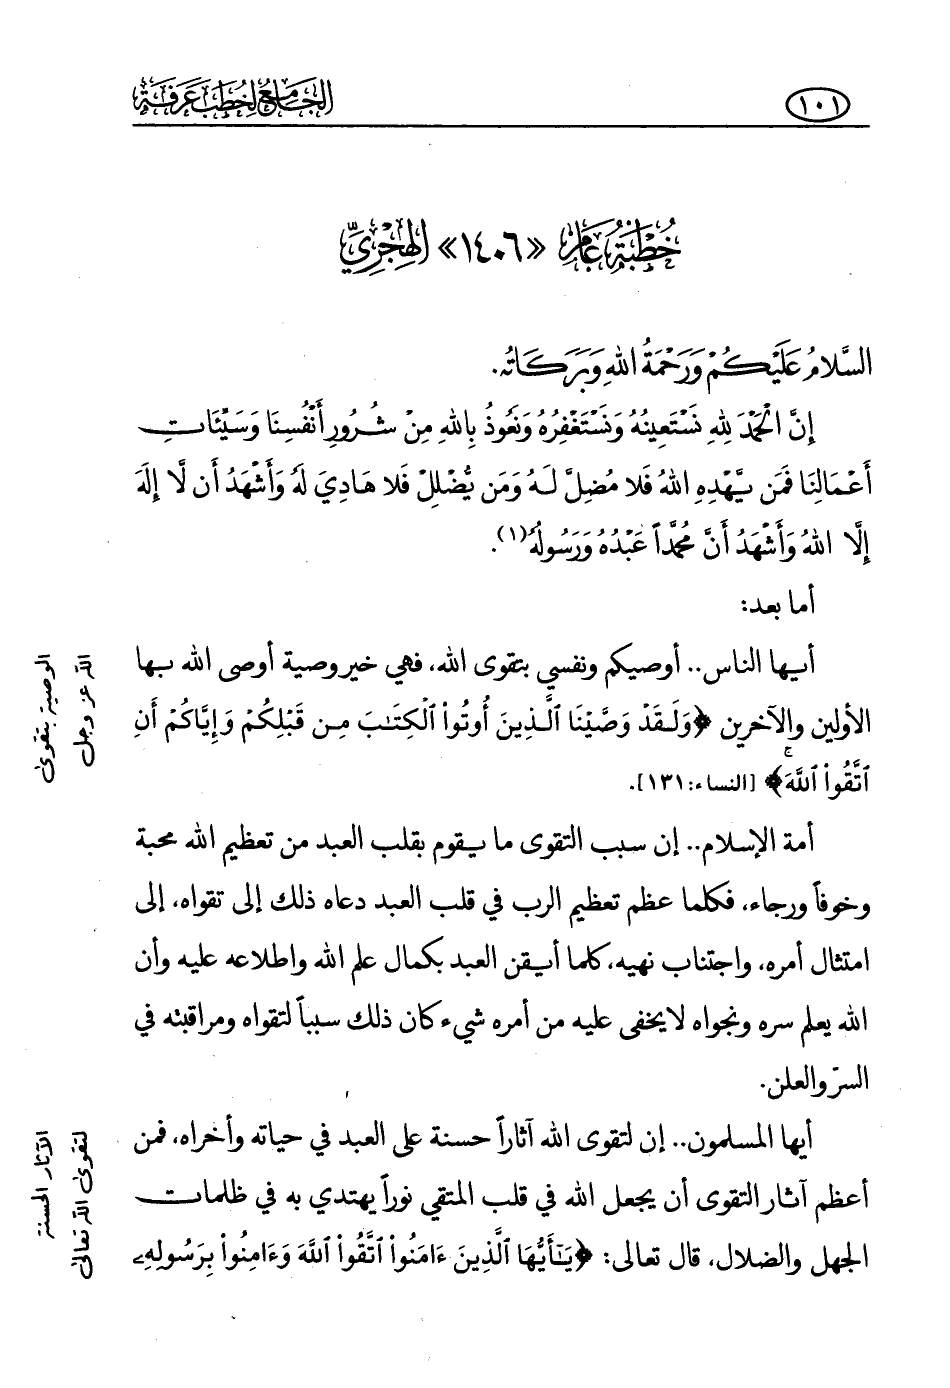 ١٠١
الجَامِعُ لِخُطَبِ عَرَفَة
خُطْبَةُ عَامِ «١٤٠٦» الهِجْرِيّ
السَّلَامُ عَلَيْكُمْ وَرَحْمَةُ اللهِ وَبَرَكَاتُه.
إِنَّ الْحَمْدَ لِلهِ نَسْتَعِينُهُ وَنَسْتَغْفِرُهُ وَنَعُوذُ بِاللهِ مِنْ شُرُورِ أَنْفُسِنَا وَسَيِّئَاتِ
أَعْمَالِنَا فَمَن يَّهْدِهِ اللهُ فَلا مُضِلَّ لَهُ وَمَن يُّضْلِلْ فَلا هَادِيَ لَهُ وَأَشْهَدُ أَن لَّا إِلَهَ
إِلَّا اللهُ وَأَشْهَدُ أَنَّ مُحَمَّداً عَبْدُهُ وَرَسُولُهُ(١).
أما بعد:
أيها الناس.. أوصيكم ونفسي بتقوى الله، فهي خير وصية أوصى الله بها
الأولين والآخرين ﴿وَلَقَدْ وَصَّيْنَا ٱلَّذِينَ أُوتُوا۟ ٱلْكِتَٰبَ مِن قَبْلِكُمْ وَإِيَّاكُمْ أَنِ
ٱتَّقُوا۟ ٱللَّهَ ۚ﴾ [النساء: ١٣١].
الوصية بتقوى
الله عز وجل
أمة الإسلام.. إن سبب التقوى ما يقوم بقلب العبد من تعظيم الله محبة
وخوفاً ورجاء، فكلما عظم تعظيم الرب في قلب العبد دعاه ذلك إلى تقواه، إلى
امتثال أمره، واجتناب نهيه، كلما أيقن العبد بكمال علم الله واطلاعه عليه وأن
الله يعلم سره ونجواه لا يخفى عليه من أمره شيء كان ذلك سبباً لتقواه ومراقبته في
السرّ والعلن.
أيها المسلمون.. إن لتقوى الله آثاراً حسنة على العبد في حياته وأخراه، فمن
أعظم آثار التقوى أن يجعل الله في قلب المتقي نوراً يهتدي به في ظلمات
الجهل والضلال، قال تعالى: ﴿يَٰٓأَيُّهَا ٱلَّذِينَ ءَامَنُوا۟ ٱتَّقُوا۟ ٱللَّهَ وَءَامِنُوا۟ بِرَسُولِهِۦ
الآثار الحسنة
لتقوى الله تعالى